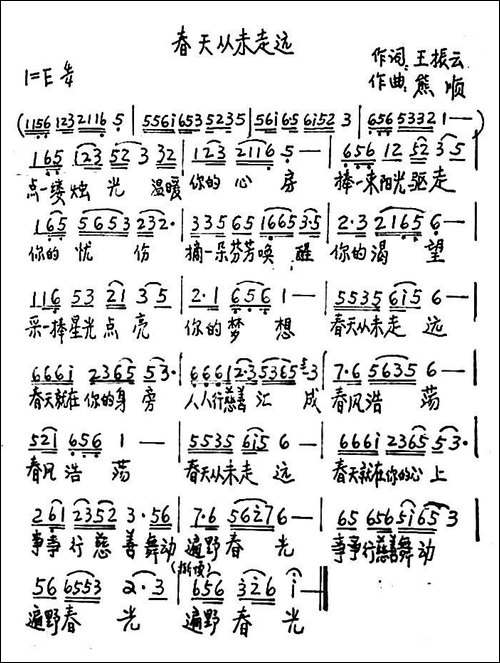 春天从未走远
作词:王振云
1=E 4/4
作曲:熊顺
(1156 1232116 5 | 556i653 5235 | 56i65 6i52 3 | 6565332 1—)
165 123 52 3 32 | 123 2116 5 — | 656 12 52 35 |
点一缕烛光 温暖 你的心房 捧一束阳光驱走
165 5653 232· | 33565 1665 3·5 | 2·3 2165 6— |
你的忧伤 摘一朵芬芳唤醒 你的渴望
116 53 21 35 | 2·1 656 1— | 5535 6i5 6— |
采一捧星光点亮 你的梦想 春天从未走远
666i 2365 53· | 6661 2·35365 3 | 7·6 5635 6— |
春天就在你的身旁 人人行慈善汇成 春风浩荡
52i 656 1 — | 5535 6i5 6 — | 666i 2365 53· |
春风浩荡 春天从未走远 春天就在你的心上
26i 2352 3·56 | 7·6 56i27 6— | 65 656 5i65 3
事事行慈善舞动 遍野春光 事事行慈善舞动
(渐慢)
56 6553 2·3 | 656 326 i—
遍野春光 遍野春光